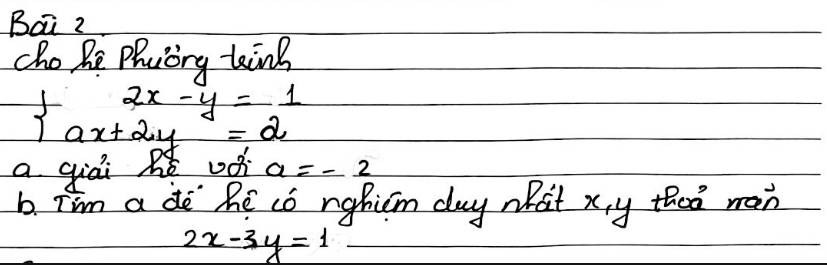 Bài 2
cho hệ Phương trình
{ 2x - y = 1
ax + 2y = 2
a. giải hệ với a = - 2
b. Tìm a để hệ có nghiệm duy nhất x, y thoả mãn
2x - 3y = 1